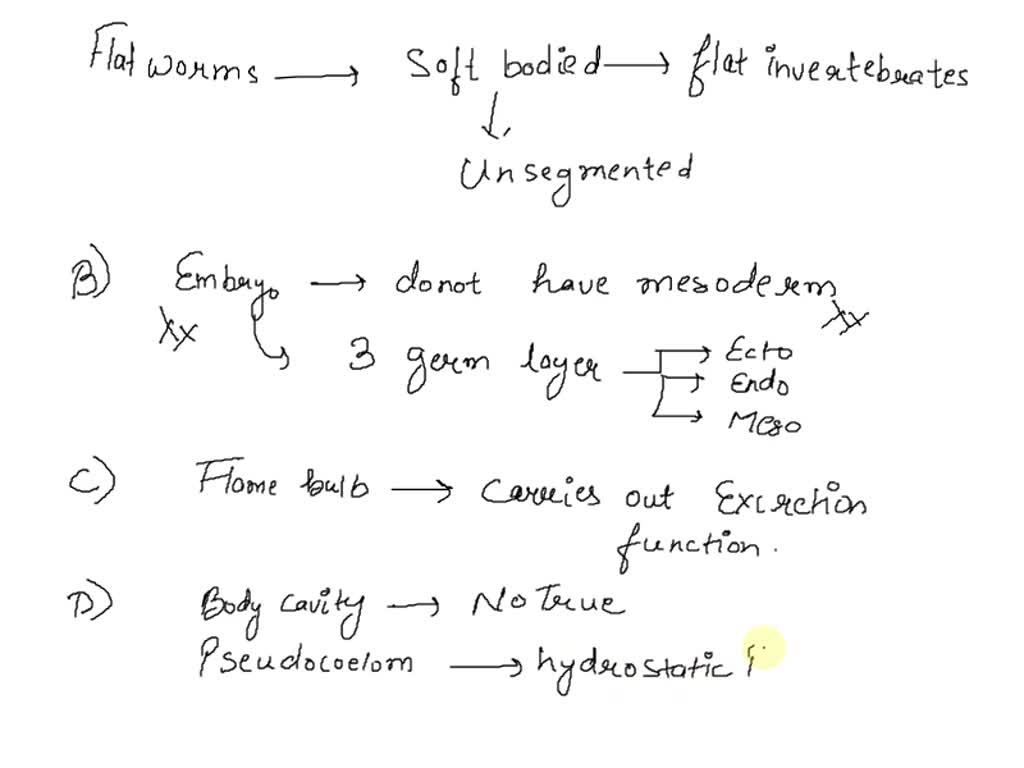 Flat worms → Soft bodied → flat invertebrates
↓
Unsegmented
B) Embryo → donot have mesoderm
xx xx
3 germ layer → Ecto
→ Endo
→ Meso
C) Flame bulb → Carries out Excretion
function.
D) Body cavity → No True
Pseudocoelom → hydrostatic